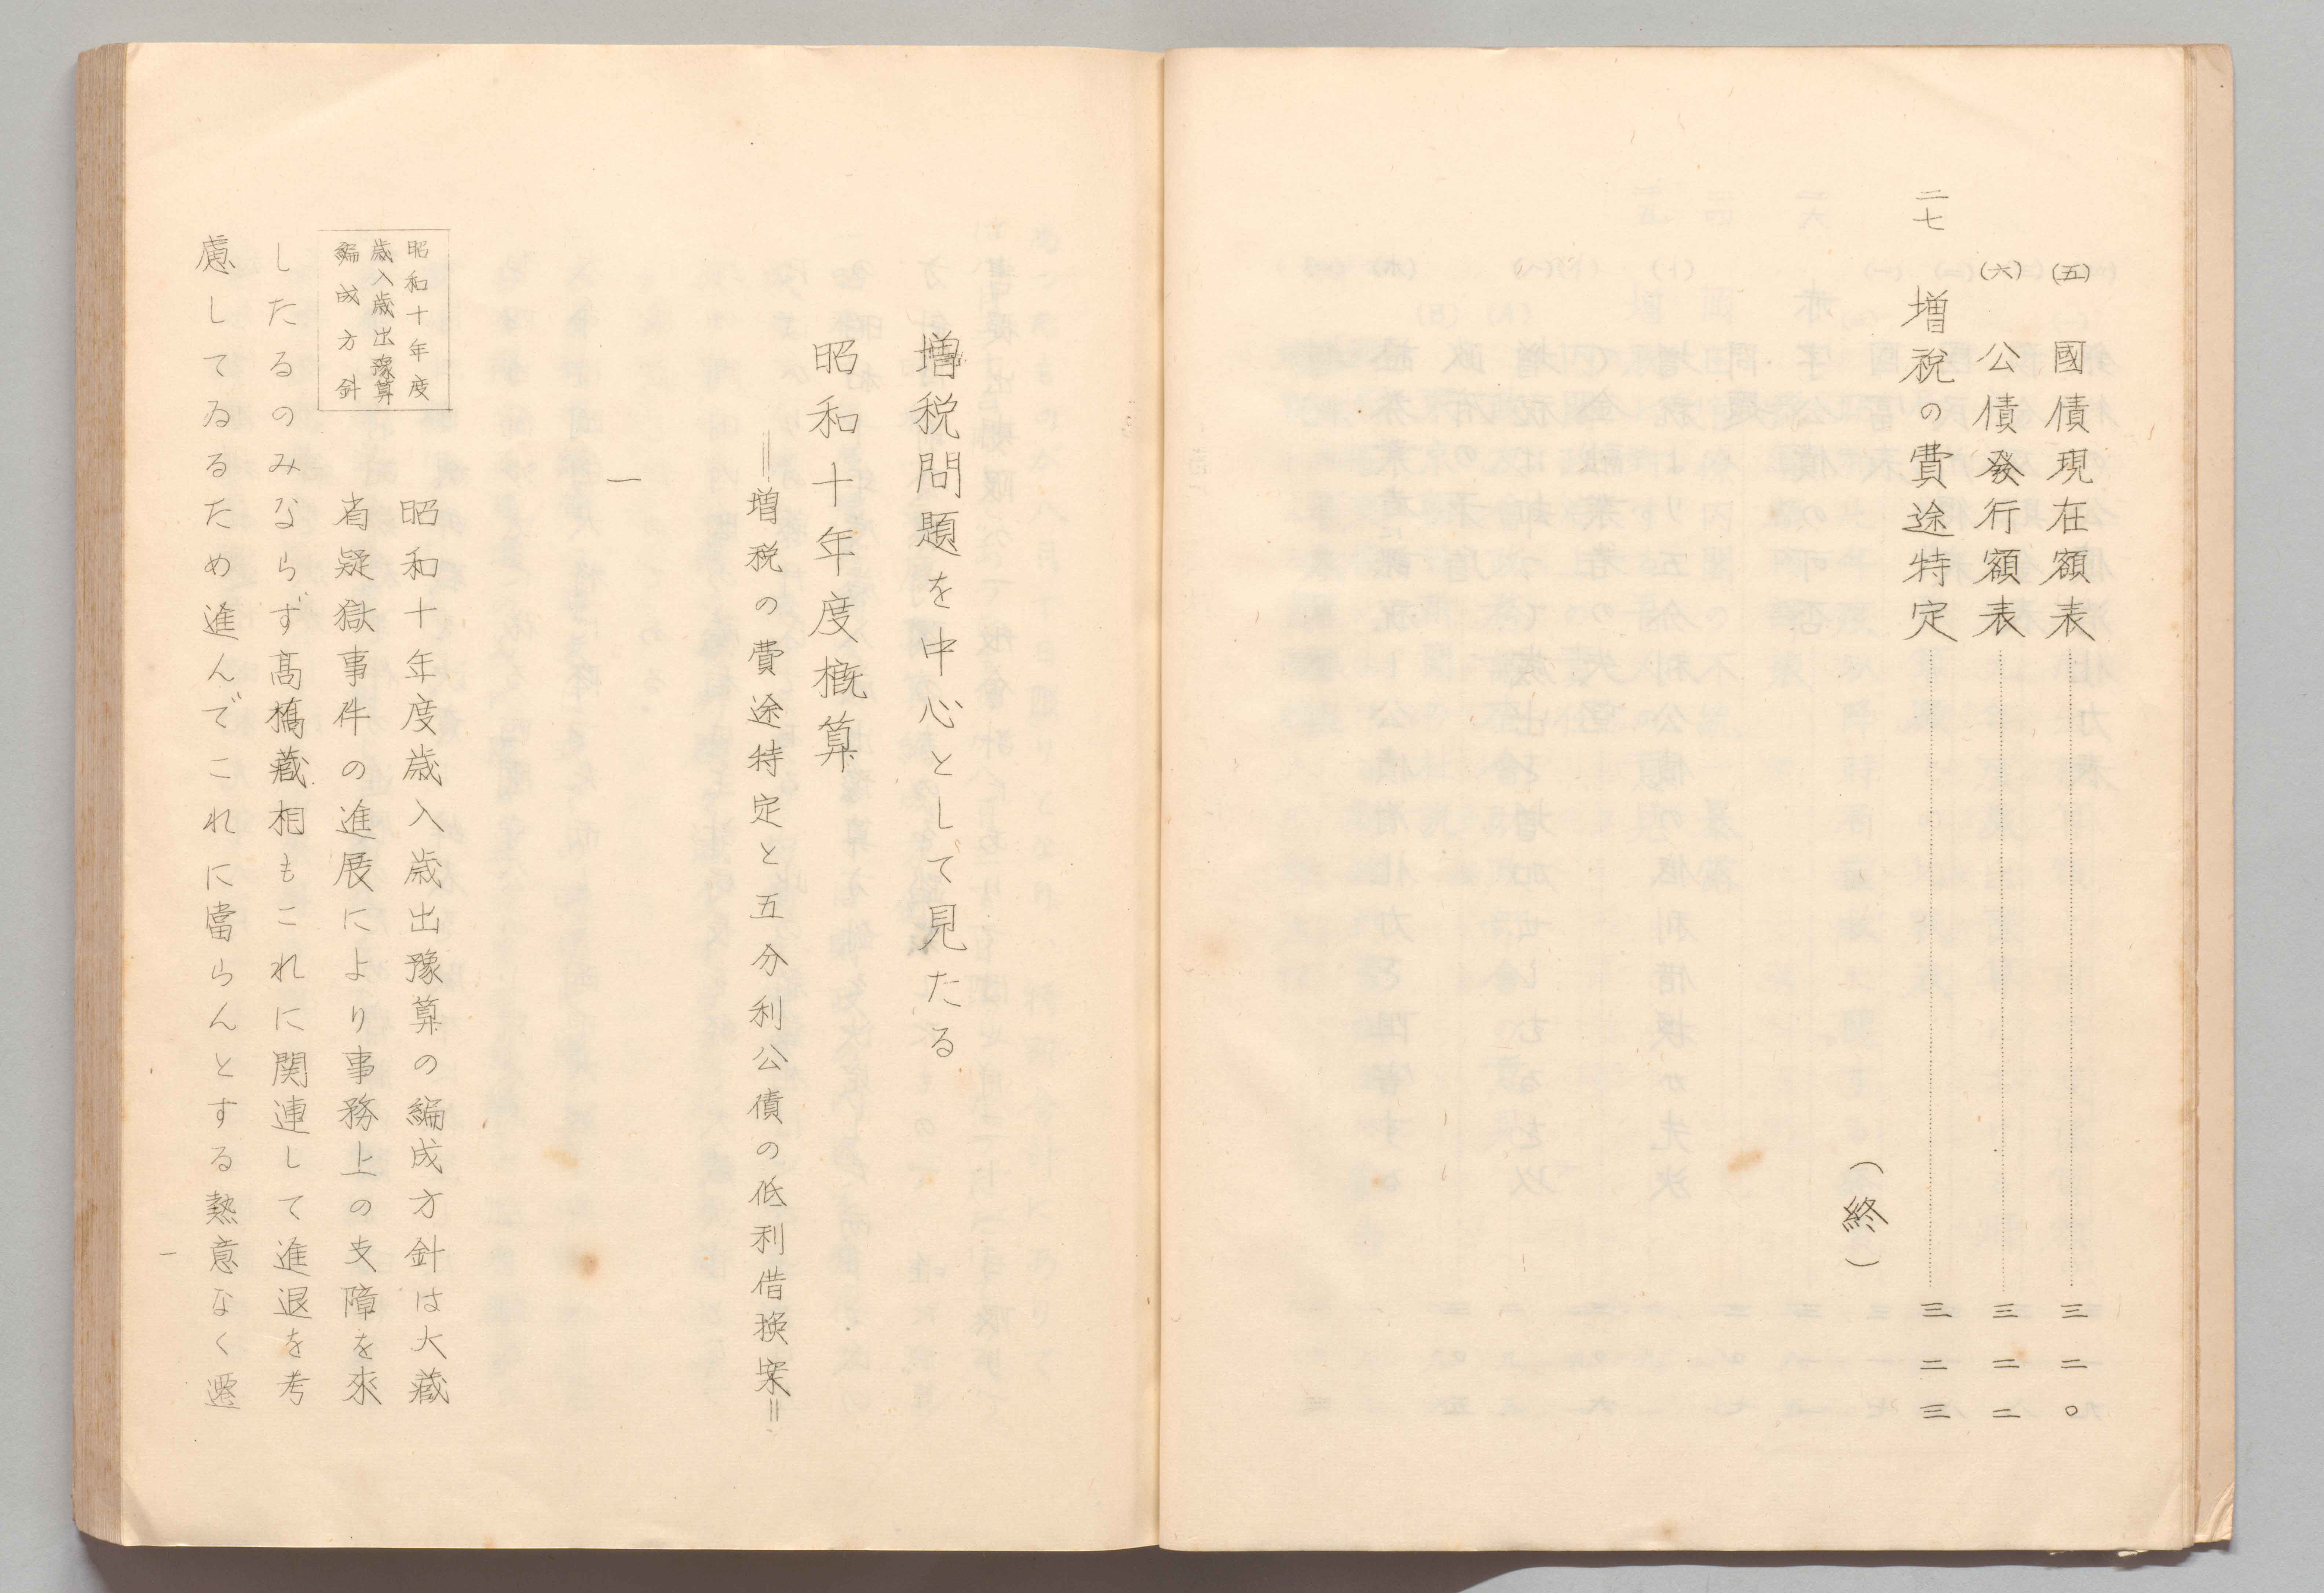 (五) 國債現在額表……三二〇
(六) 公債發行額表……三二二
二七 増税の費途特定……三二三
(終)
増税問題を中心として見たる
昭和十年度概算
＝増税の費途特定と五分利公債の低利借換案＝
一
昭和十年度
歳入歳出豫算
編成方針
昭和十年度歳入歳出豫算の編成方針は大藏
省疑獄事件の進展により事務上の支障を來
したるのみならず髙橋藏相もこれに関連して進退を考
慮してゐるため進んでこれに當らんとする熱意なく遷
一